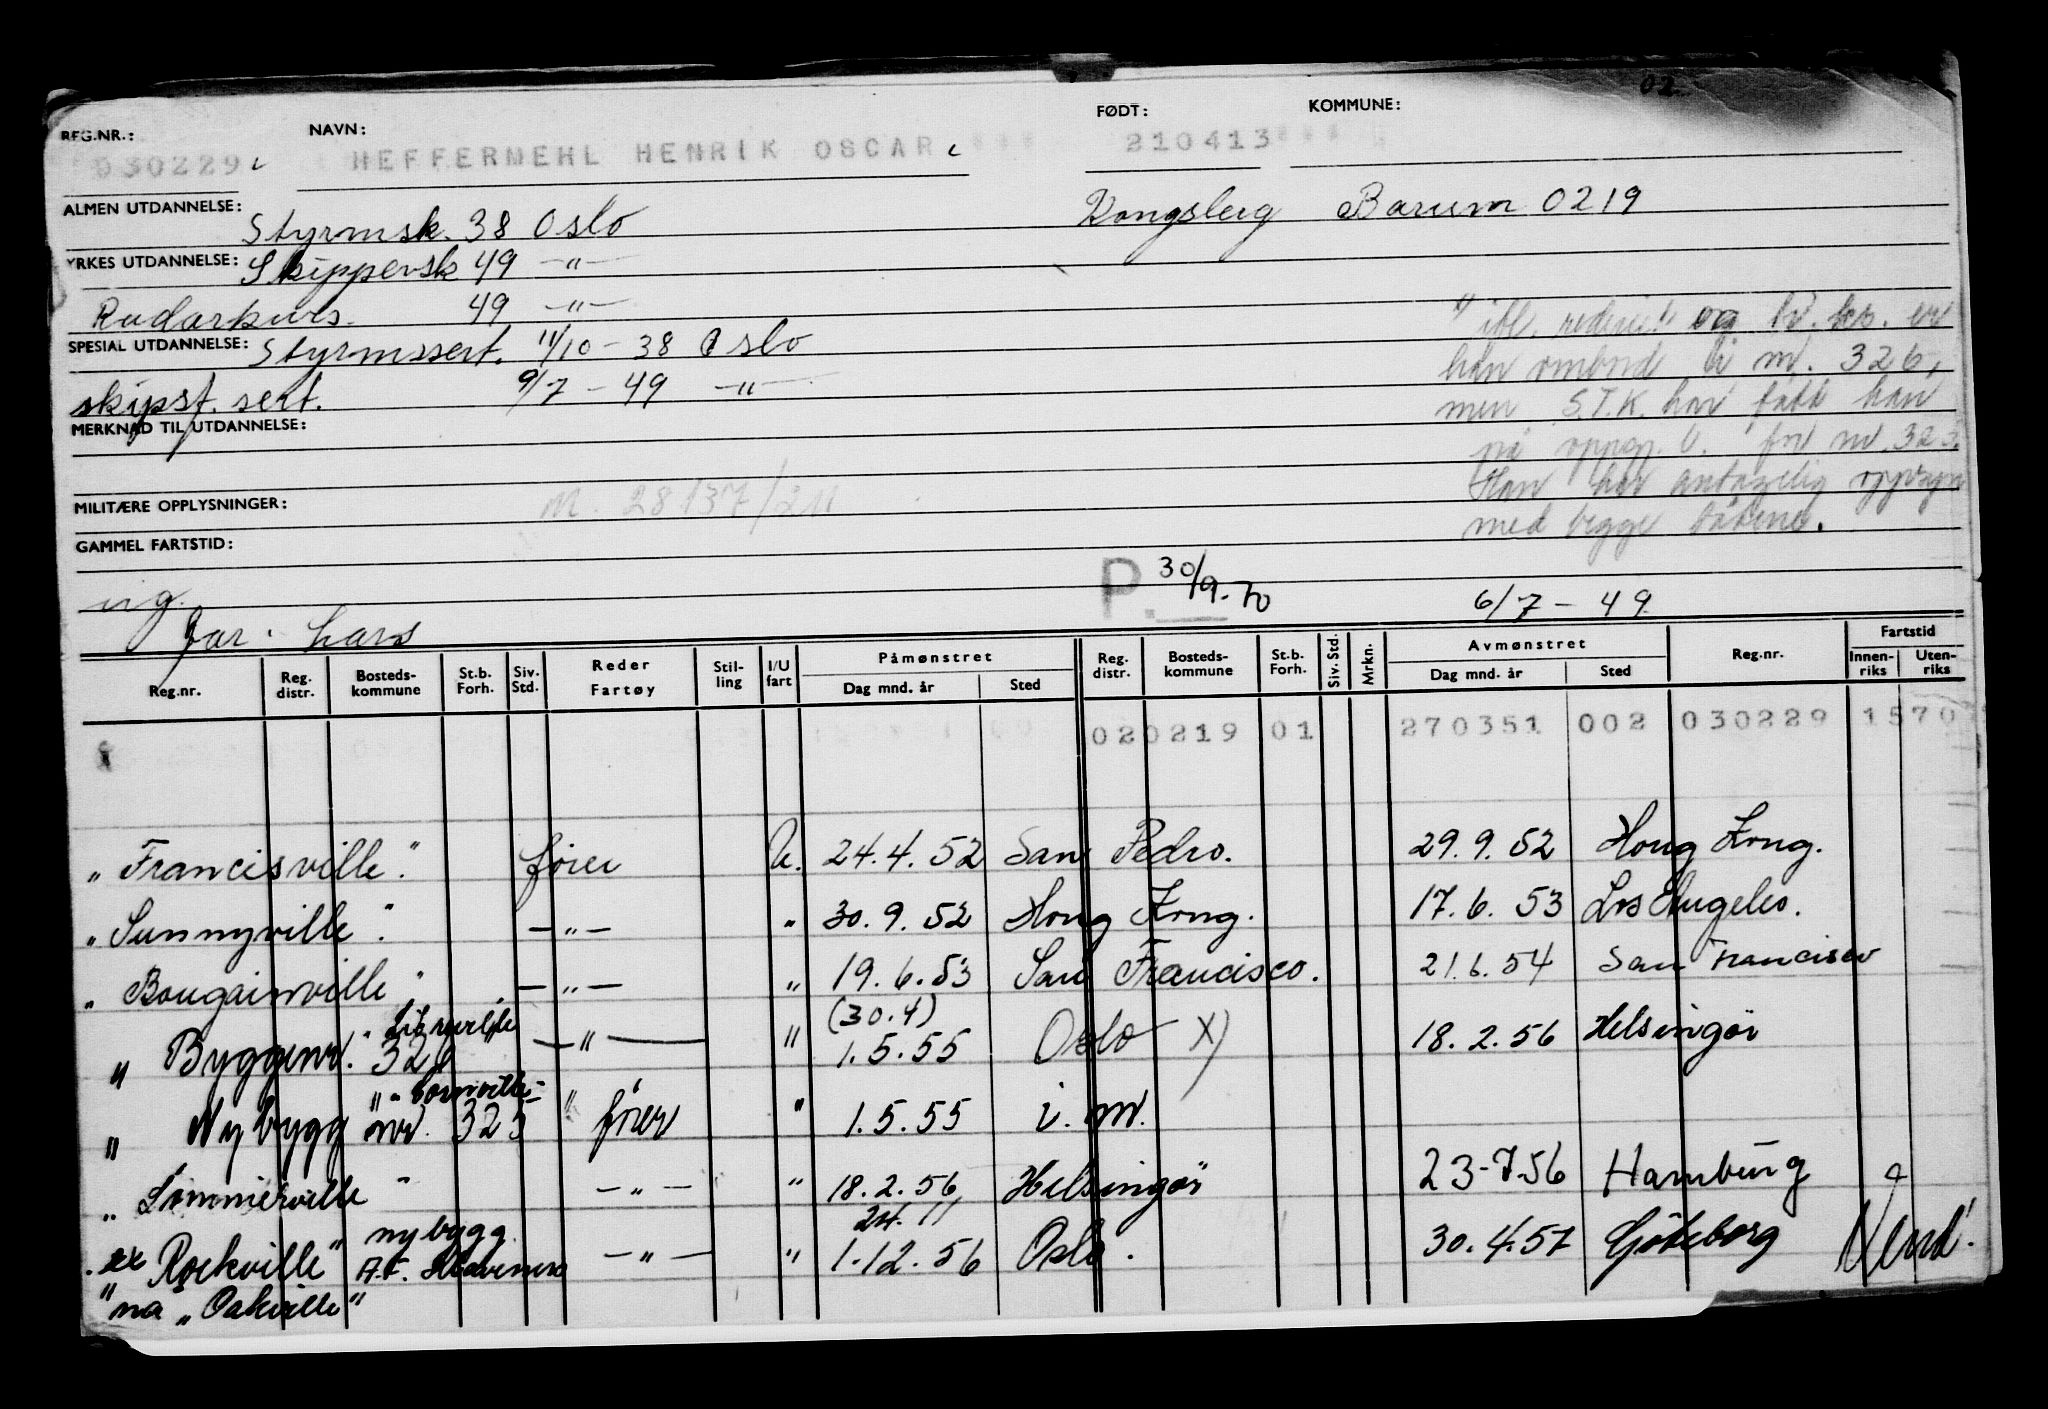 02
REG.NR.: NAVN: FØDT: KOMMUNE:
030229 HEFFERMEHL HENRIK OSCAR 210413
ALMEN UTDANNELSE: Styrmsk. 38 Oslo Kongsberg Bærum 0219
YRKES UTDANNELSE: Skippersk 49 -"-
Radarkurs. 49 -"-
SPESIAL UTDANNELSE: Styrmssert. 11/10 - 38 Oslo
skipsf. sert. 9/7 - 49 -"-
MERKNAD TIL UTDANNELSE:
han ombord i nr. 326,
men S.T.K. har fått han
på oppg. for nr. 325.
Han har antagelig oppsyn
med begge båtene.
MILITÆRE OPPLYSNINGER: M. 28137/211
GAMMEL FARTSTID:
ug. P. 30/9-70 6/7 - 49
far. Lars
Reg.nr. Reg. distr. Bosteds- kommune St.b. Forh. Siv. Std. Reder Fartøy Stil- ling I/U fart Påmønstret Dag mnd. år Sted Reg. distr. Bosteds- kommune St.b. Forh. Siv. Std. Mrkn. Avmønstret Dag mnd. år Sted Reg.nr. Fartstid Innen- riks Uten- riks
020219 01 270351 002 030229 1570
"Francisville". fører U. 24.4.52 San Pedro. 29.9.52 Hong Kong.
"Sunnyville". -"- " 30.9.52 Hong Kong. 17.6.53 Los Angeles.
"Bougainville" -"- " 19.6.53 San Francisco. 21.6.54 San Francisco
(30.4)
" Byggenr. 326 -"- " 1.5.55 Oslo X) 18.2.56 Helsingør
" Nybygg nr. 325 " fører " 1.5.55 i. nr.
"Sommerville" -"- " 18.2.56 Helsingør 23-7.56 Hamburg
24. 11
ex "Rockville" nybygg -"- " 1-12.56 Oslo. 30.4.57 Göteborg Vend!
" nå "Oakville"